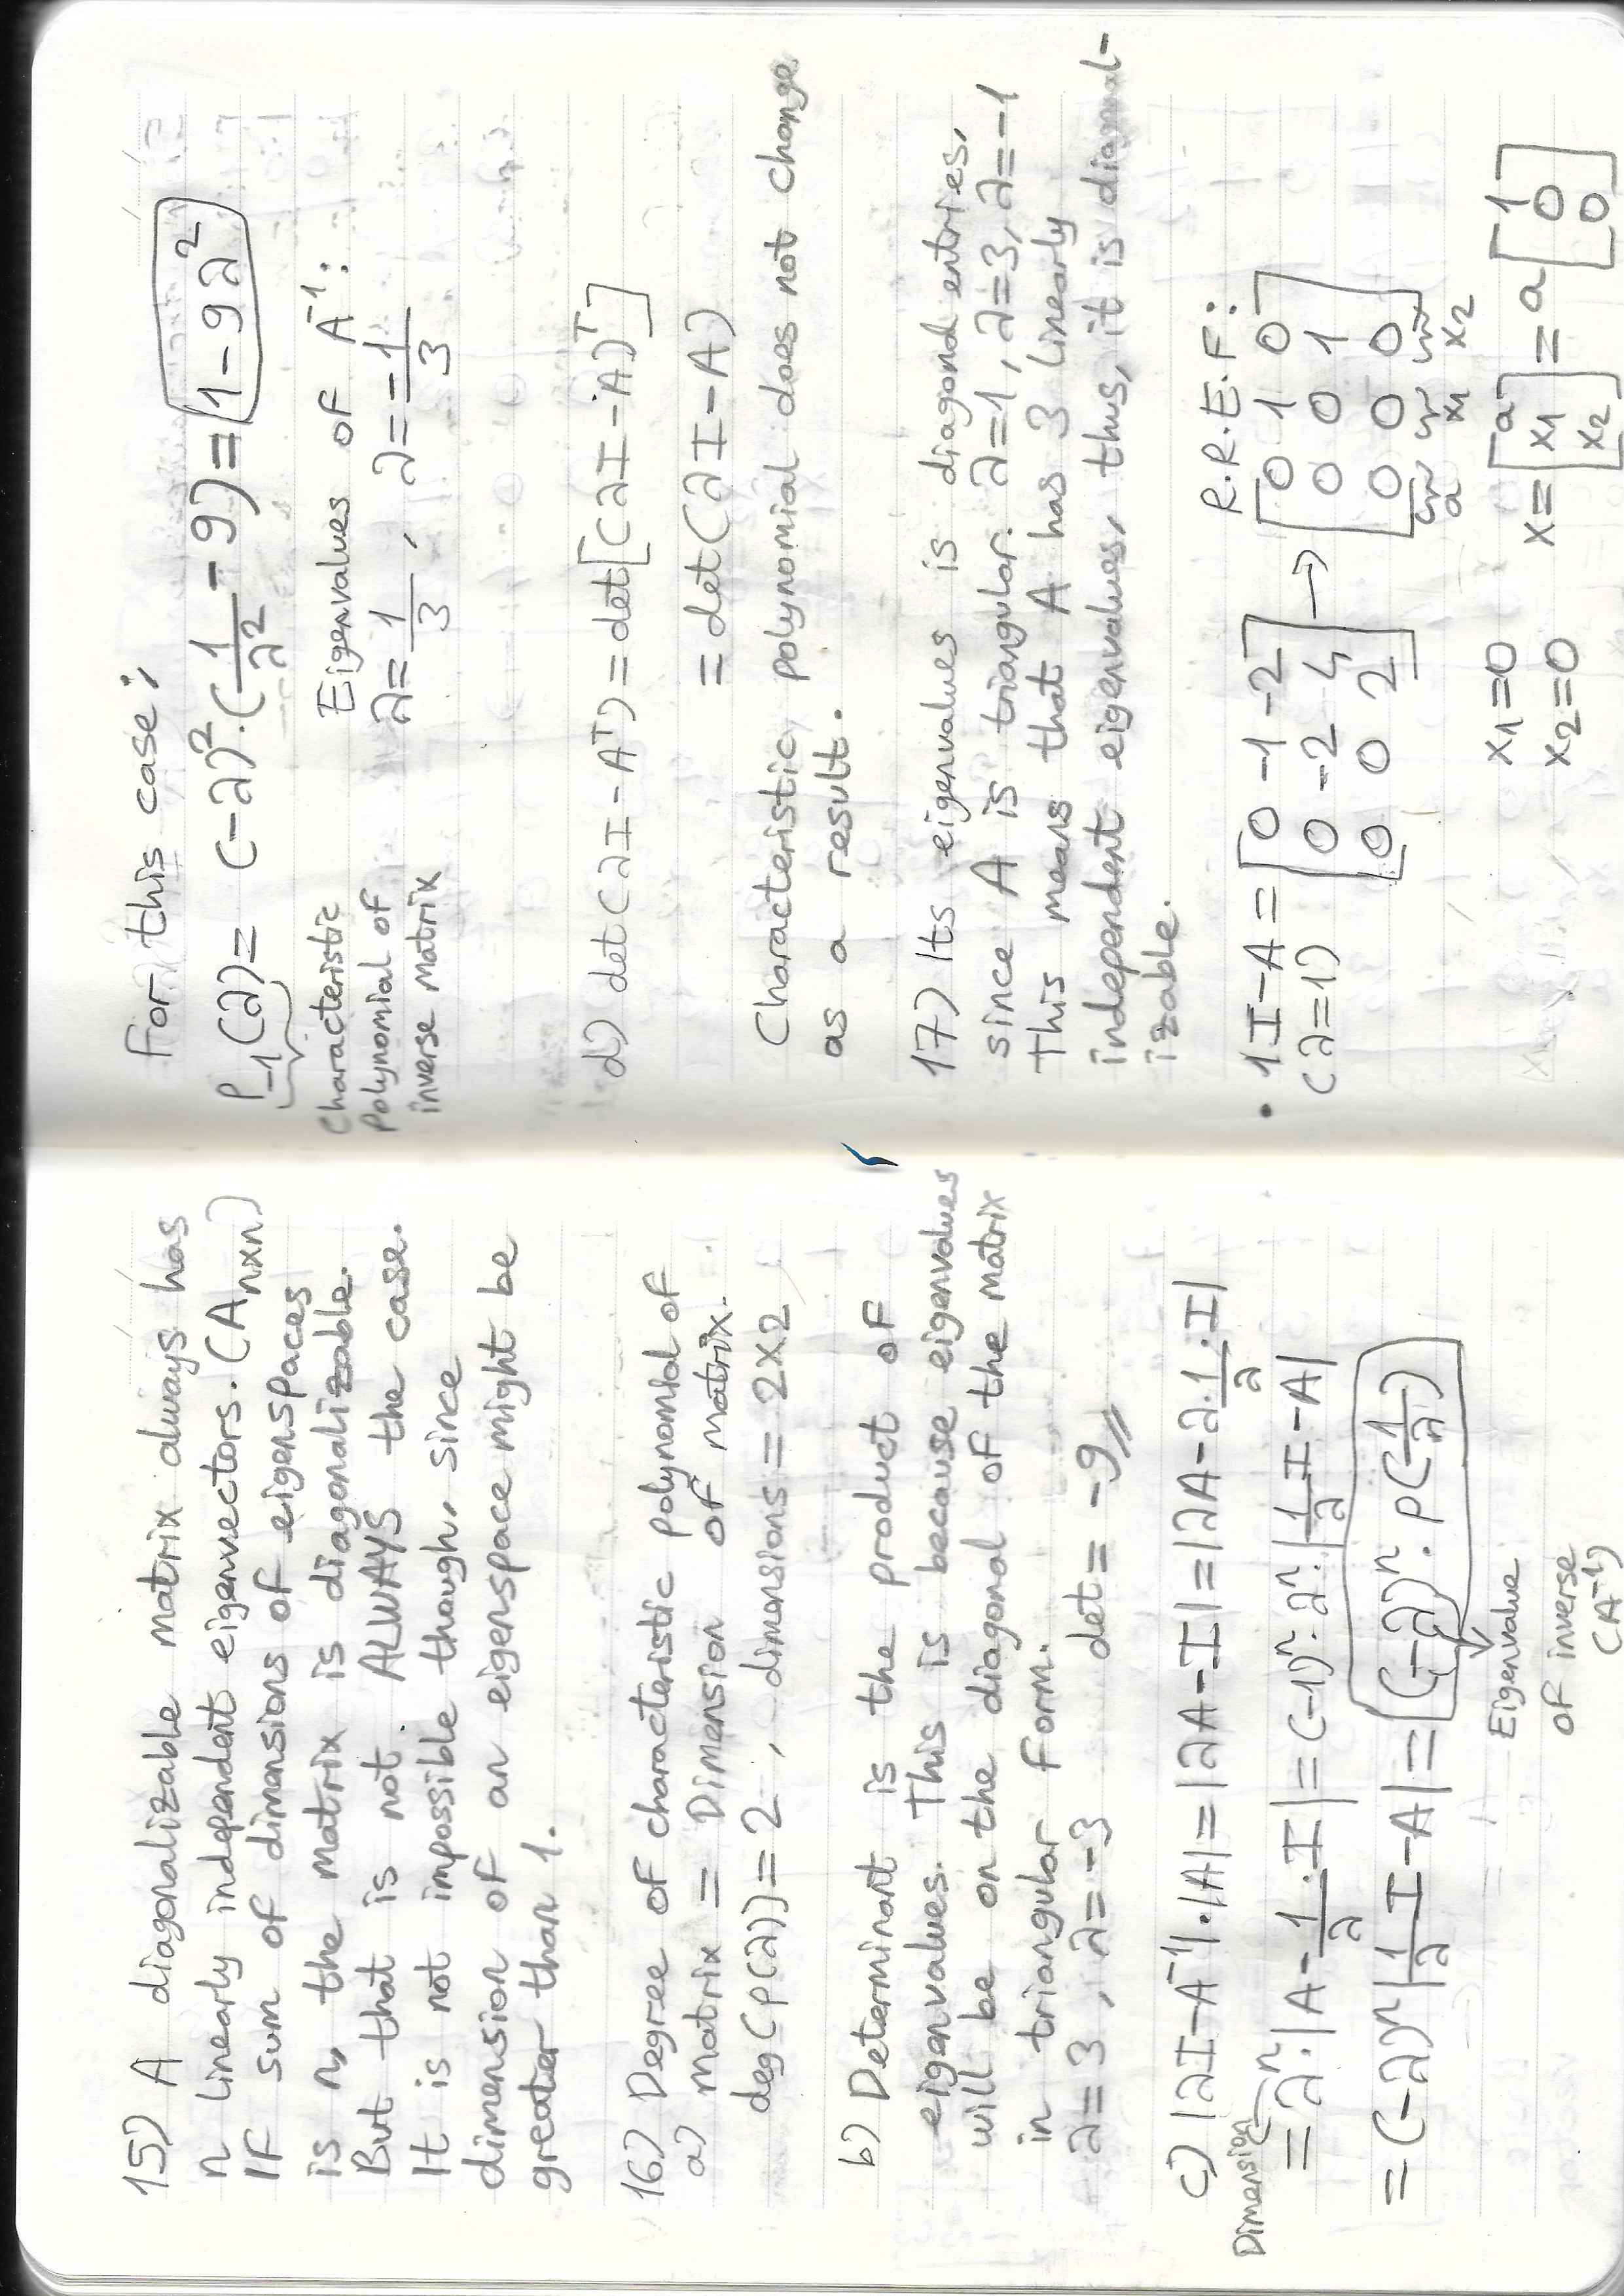 15) A diagonalizable matrix always has
n linearly independent eigenvectors. (Anxn)
If sum of dimensions of eigenspaces
is n, the matrix is diagonalizable.
But that is not ALWAYS the case.
It is not impossible though, since
dimension of an eigenspace might be
greater than 1.
16) Degree of characteristic polynomial of
a) matrix = Dimension of matrix.
deg(p(λ)) = 2 , dimensions = 2x2
b) Determinant is the product of
eigenvalues. This is because eigenvalues
will be on the diagonal of the matrix
in triangular form.
λ=3 , λ=-3 det= -9
c) |λI-A⁻¹|·|A|=|λA-I|=|λA-λ·1/λ·I|
Dimension
=λⁿ·|A-1/λ·I|=(-1)ⁿ·λⁿ·|1/λI-A|
=(-λ)ⁿ|1/λI-A|=(-λ)ⁿ·p(1/λ)
Eigenvalue
of inverse
(A⁻¹)
For this case:
p₋₁(λ)= (-λ)²·(1/λ²-9)=1-9λ²
Characteristic
polynomial of
inverse matrix
Eigenvalues of A⁻¹:
λ=1/3 , λ=-1/3
d) det(λI-Aᵀ)=det[(λI-A)ᵀ]
=det(λI-A)
Characteristic polynomial does not change
as a result.
17) Its eigenvalues is diagonal entries,
since A is triangular. λ=1, λ=3, λ=-1
This means that A has 3 linearly
independent eigenvalues, thus, it is diagonal-
izable.
R.R.E.F:
• 1I-A = [0 -1 -2 → [0 1 0
(λ=1) 0 -2 4 0 0 1
0 0 2] 0 0 0]
a x₁ x₂
x₁=0
x₂=0
x=[a x₁ x₂]=a[1 0 0]